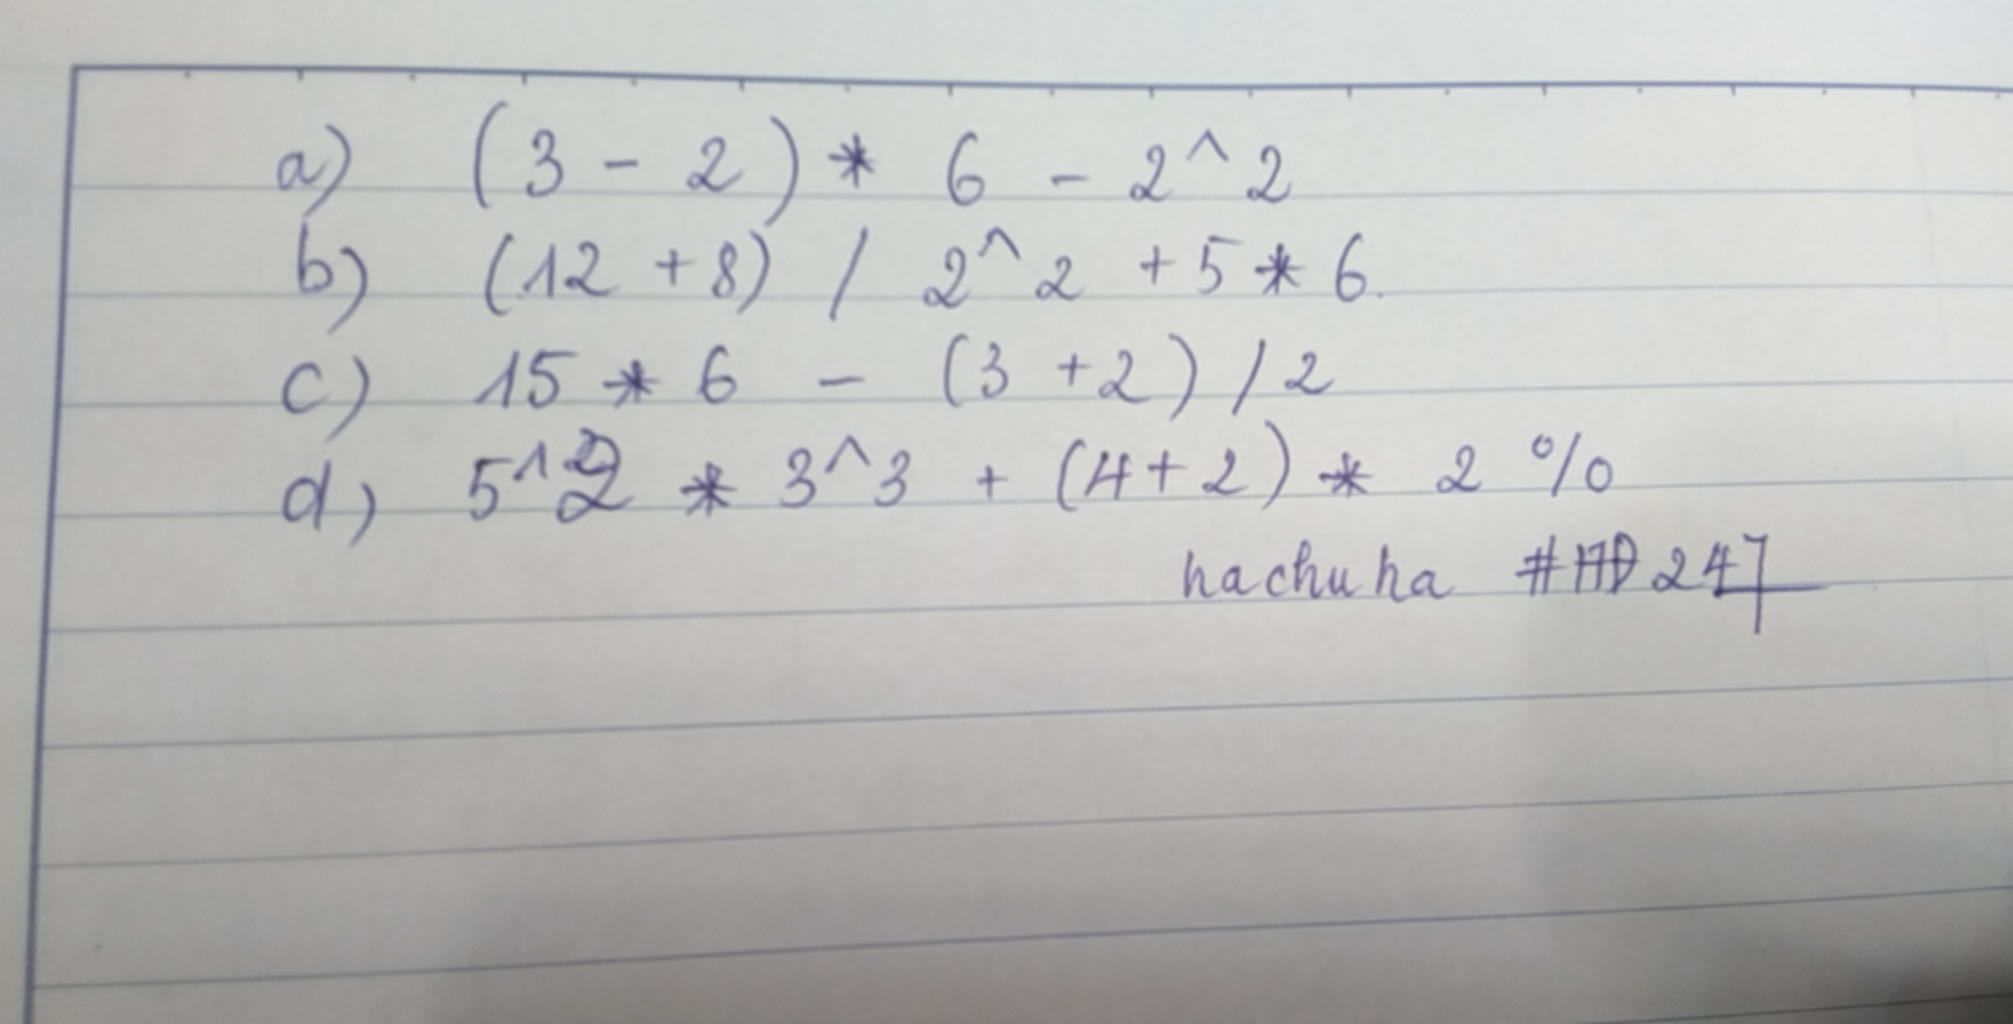 a) (3 - 2) * 6 - 2^2
b) (12 + 8) / 2^2 + 5 * 6.
c) 15 * 6 - (3 + 2) / 2
d) 5^2 * 3^3 + (4 + 2) * 2 %
hachuha #HD247